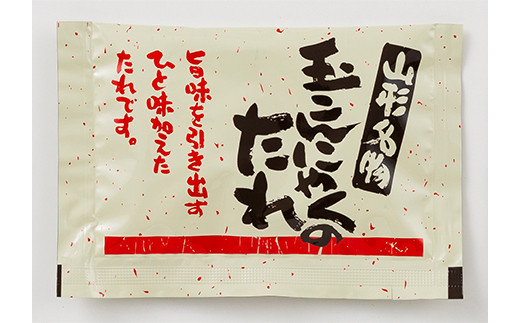 山形名物
玉こんにゃくの
たれ
旨味を引き出す
ひと味加えた
たれです。